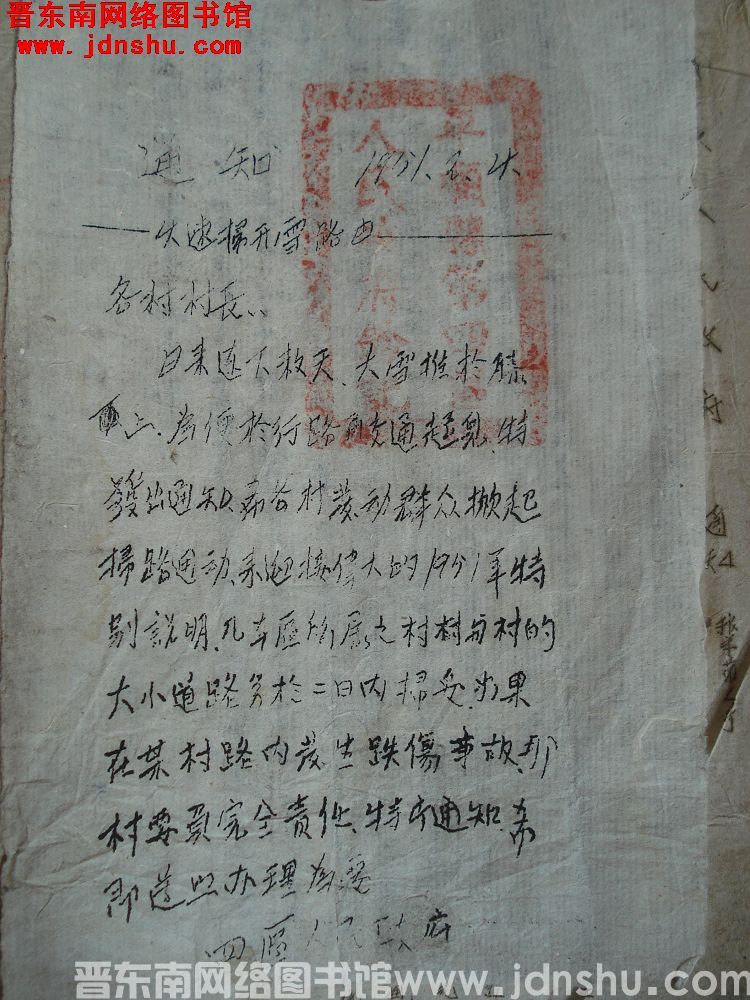 晋东南网络图书馆
www.jdnshu.com
通知 1951.2.4
——火速掃开雪路由——
各村村長:
日来连下数天、大雪堆於膝
上、為便於行路 交通起見、特
發出通知、希各村發动群众掀起
掃路运动、来迎接偉大的1951年特
别説明、凡本區所属之村村与村的
大小道路务於二日内掃妥、如果
在某村路内发生跌傷事故、那
村要負完全责任、特此通知、希
即遵照办理為要
四區人民政府
晋东南网络图书馆 www.jdnshu.com